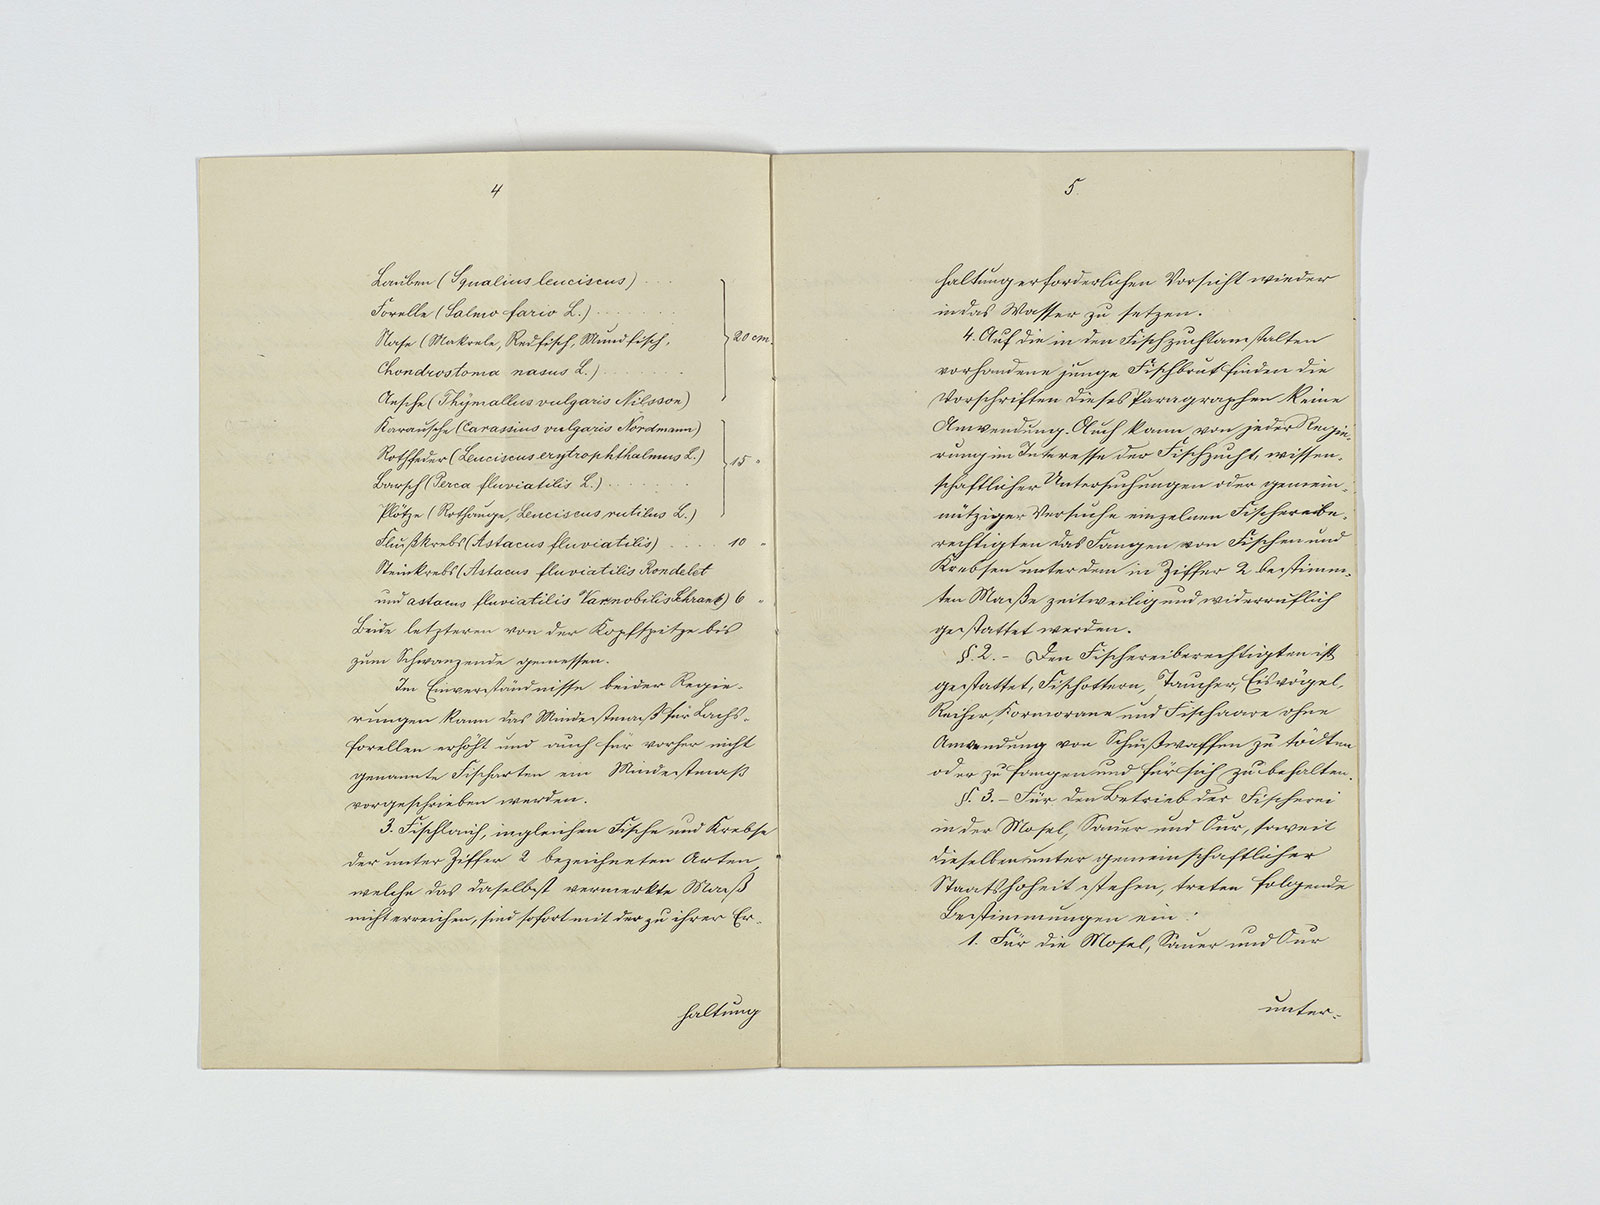 4
Lauben (Squalius leuciscus) . . .
Forelle (Salmo fario L.) . . . . . .
Nase (Makrele, Redfisch, Mundfisch,
Chondrostoma nasus L.) . . . . . .
} 20 cm.
Aesche (Thymallus vulgaris Nilsson)
Karausche (Carassius vulgaris Nordmann)
Rothfeder (Leuciscus erytrophthalmus L.)
} 15 "
Barsch (Perca fluviatilis L.) . . . . . .
Plötze (Rothauge, Leuciscus rutilus L.)
Flußkrebs (Astacus fluviatilis) . . . . 10 "
Steinkrebs (Astacus fluviatilis Rondelet
und astacus fluviatilis Var. nobilis Schrank) 6 "
Beide letzteren von der Kopfspitze bis
zum Schwanzende gemessen.
Im Einverständnisse beider Regie-
rungen kann das Mindestmaß für Lachs-
forellen erhöht und auch für vorher nicht
genannte Fischarten ein Mindestmaß
vorgeschrieben werden.
3. Fischlaich, ingleichen Fische und Krebse
der unter Ziffer 2 bezeichneten Arten,
welche das daselbst vermerkte Maaß
nicht erreichen, sind sofort mit der zu ihrer Er-
haltung
5
haltung erforderlichen Vorsicht wieder
in das Wasser zu setzen.
4. Auf die in den Fischzuchtanstalten
vorhandene junge Fischbrut finden die
Vorschriften dieses Paragraphen keine
Anwendung. Auch kann von jeder Regie-
rung im Interesse der Fischzucht, wissen-
schaftlicher Untersuchungen oder gemein-
nütziger Versuche einzelnen Fischereibe-
rechtigten das Fangen von Fischen und
Krebsen unter dem in Ziffer 2 bestimm-
ten Maaße zeitweilig und widerruflich
gestattet werden.
§. 2. - Den Fischereiberechtigten ist
gestattet, Fischottern, Taucher, Eisvögel,
Reiher, Kormorane und Fischaare ohne
Anwendung von Schußwaffen zu tödten
oder zu fangen und für sich zu behalten.
§. 3. - Für den Betrieb der Fischerei
in der Mosel, Sauer und Our, soweit
dieselben unter gemeinschaftlicher
Staatshoheit stehen, treten folgende
Bestimmungen ein:
1. Für die Mosel, Sauer und Our
unter-